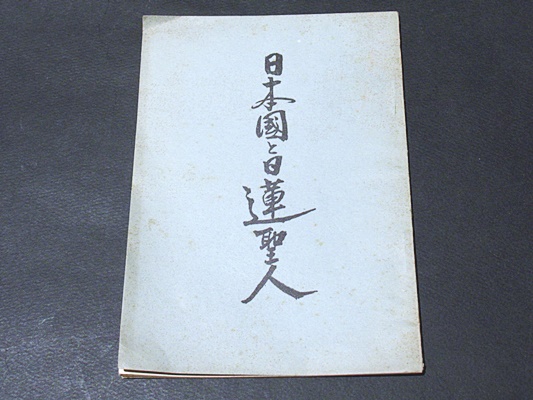 日本國と日蓮聖人